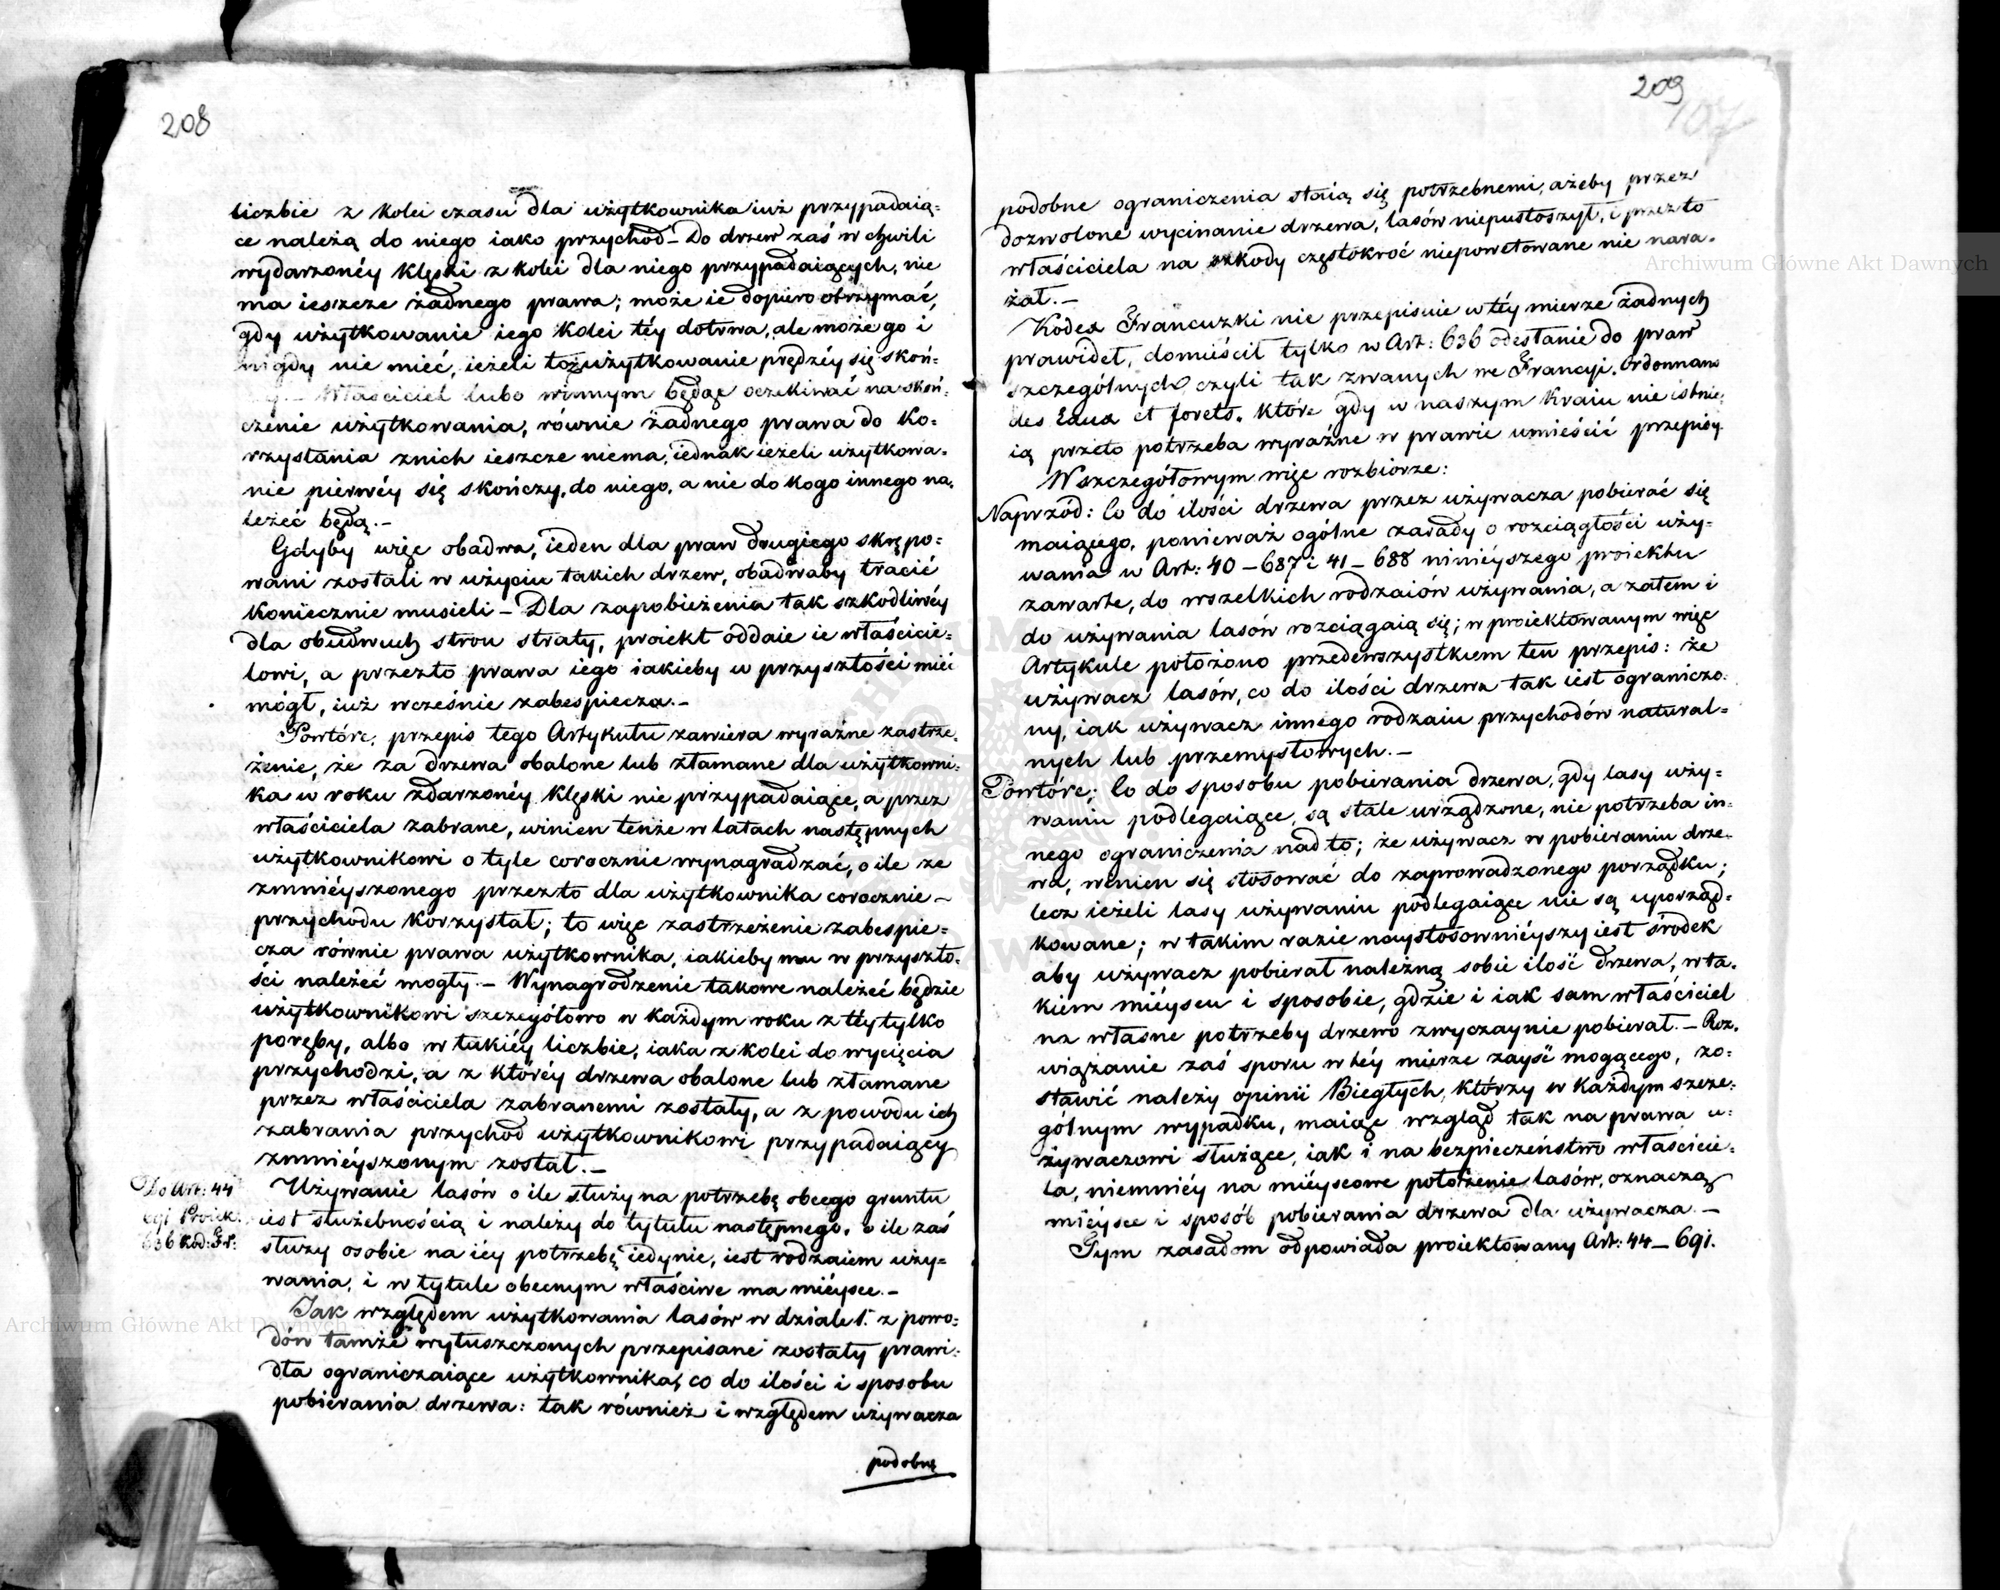 208
liczbie z kolei czasu dla użytkownika iuż przypadaią-
ce należą do niego iako przychod – Do drzew zaś w chwili
wydarzonéy klęski z kolei dla niego przypadaiących, nie
ma ieszcze żadnego prawa; może ie dopiero otrzymać,
gdy użytkowanie iego kolei téy dotrwa, ale może go i
nigdy nie mieć, ieżeli toż użytkowanie prędzéy się skoń-
czy – Właściciel lubo winnym będąc oczekiwać na skoń-
czenie użytkowania, równie żadnego prawa do ko-
rzystania z nich ieszcze niema, iednak ieżeli użytkowa-
nie pierwéy się skończy, do niego, a nie do kogo innego na-
leżeć będą. –
Gdyby więc obadwa, ieden dla praw drugiego skrępo-
wani zostali w użyciu takich drzew, obadwaby tracić
koniecznie musieli – Dla zapobieżenia tak szkodliwéy
dla obudwuch stron straty, proiekt oddaie ie właścicie-
lowi, a przezto prawa iego iakieby w przyszłości mieć
mógł, iuż wcześnie zabespiecza. –
Powtóre, przepis tego Artykułu zawiera wyraźne zastrze-
żenie, że za drzewa obalone lub złamane dla użytkowni-
ka w roku zdarzonéy klęski nie przypadaiące, a przez
właściciela zabrane, winien tenże w latach następnych
użytkownikowi o tyle corocznie wynagradzać, o ile ze
zmniéyszonego przezto dla użytkownika corocznie –
przychodu korzystał; to więc zastrzeżenie zabespie-
cza równie prawa użytkownika, iakieby mu w przyszło-
ści należeć mogły – Wynagrodzenie takowe należeć będzie
użytkownikowi szczegółowo w każdym roku z téy tylko
poręby, albo w takiéy liczbie, iaka z kolei do wycięcia
przychodzi, a z któréy drzewa obalone lub złamane
przez właściciela zabranemi zostały, a z powodu ich
zabrania przychod użytkownikowi przypadaiący
zmniéyszonym został. –
Do Art: 44
691 Proiek:
636 Kod: Fr:
Używanie lasów o ile służy na potrzebę obcego gruntu
iest służebnością i należy do tytułu następnego, o ile zaś
służy osobie na iéy potrzebę iedynie, iest rodzaiem uży-
wania, i w tytule obecnym właściwe ma miéysce. –
Jak względem użytkowania lasów w dziale 1. z powo-
dów tamże wyłuszczonych przepisane zostały prawi-
dła ograniczaiące użytkownika, co do ilości i sposobu
pobierania drzewa: tak również i względem używacza
podobne
209
107
podobne ograniczenia staią się potrzebnemi, ażeby przez
dozwolone wycinanie drzewa, lasów niepustoszył, i przezto
właściciela na szkody częstokroć niepowetowane nie nara-
żał. –
Kodex Francuzki nie przepisuie w téy mierze żadnych
prawideł, domieścił tylko w Art: 636 odesłanie do praw
szczególnych czyli tak zwanych we Francyi, Ordonnans
des Eaux et forets, które gdy w naszym Kraiu nie istnie-
ią przeto potrzeba wyraźne w prawie umieścić przepisy
W szczegółowym więc rozbiorze:
Naprzód: Co do ilości drzewa przez używacza pobierać się
maiącego, ponieważ ogólne zasady o rozciągłości uży-
wania w Art: 40 – 687 i 41 – 688 niniéyszego proiektu
zawarte, do wszelkich rodzaiów używania, a zatem i
do używania lasów rozciągaią się; w proiektowanym więc
Artykule położono przedewszystkiem ten przepis: że
używacz lasów, co do ilości drzewa tak iest ograniczo-
ny, iak używacz innego rodzaiu przychodów natural-
nych lub przemysłowych. –
Powtóre; Co do sposobu pobierania drzewa, gdy lasy uży-
waniu podlegaiące, są stale urządzone, nie potrzeba in-
nego ograniczenia nad to; że używacz w pobieraniu drze-
wa, winien się stosować do zaprowadzonego porządku;
lecz ieżeli lasy używaniu podlegaiące nie są uporząd-
kowane; w takim razie naystosownieyszy iest środek
aby używacz pobierał należną sobie ilość drzewa, w ta-
kiem miéyscu i sposobie, gdzie i iak sam właściciel
na własne potrzeby drzewo zwyczaynie pobierał. – Roz-
wiązanie zaś sporu w téy mierze zayść mogącego, zo-
stawić należy opinii Biegłych, którzy w każdym szcze-
gólnym wypadku, maiąc wzgląd tak na prawa u-
żywaczowi służące, iak i na bezpieczeństwo właścicie-
la, niemniéy na miéyscowe położenie lasów, oznaczą
miéysce i sposób pobierania drzewa dla używacza. –
Tym zasadom odpowiada proiektowany Art: 44 – 691.
Archiwum Główne Akt Dawnych
Archiwum Główne Akt Dawnych